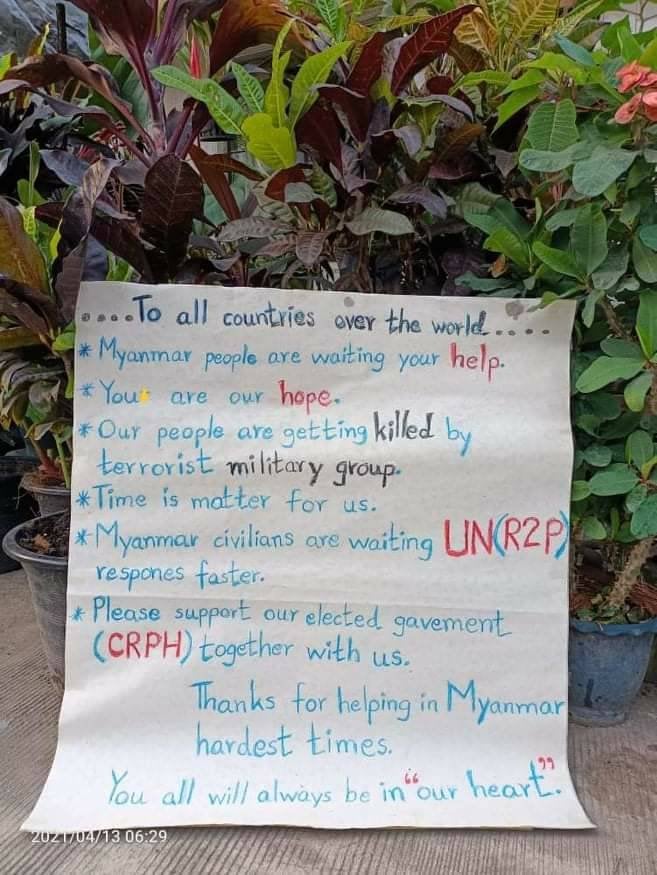 ....To all countries over the world.....
* Myanmar people are waiting your help.
* You are our hope.
* Our people are getting killed by
terrorist military group.
* Time is matter for us.
* Myanmar civilians are waiting UN(R2P)
respones faster.
* Please support our elected gavement
(CRPH) together with us.
Thanks for helping in Myanmar
hardest times.
You all will always be in "our heart".
2021/04/13 06:29